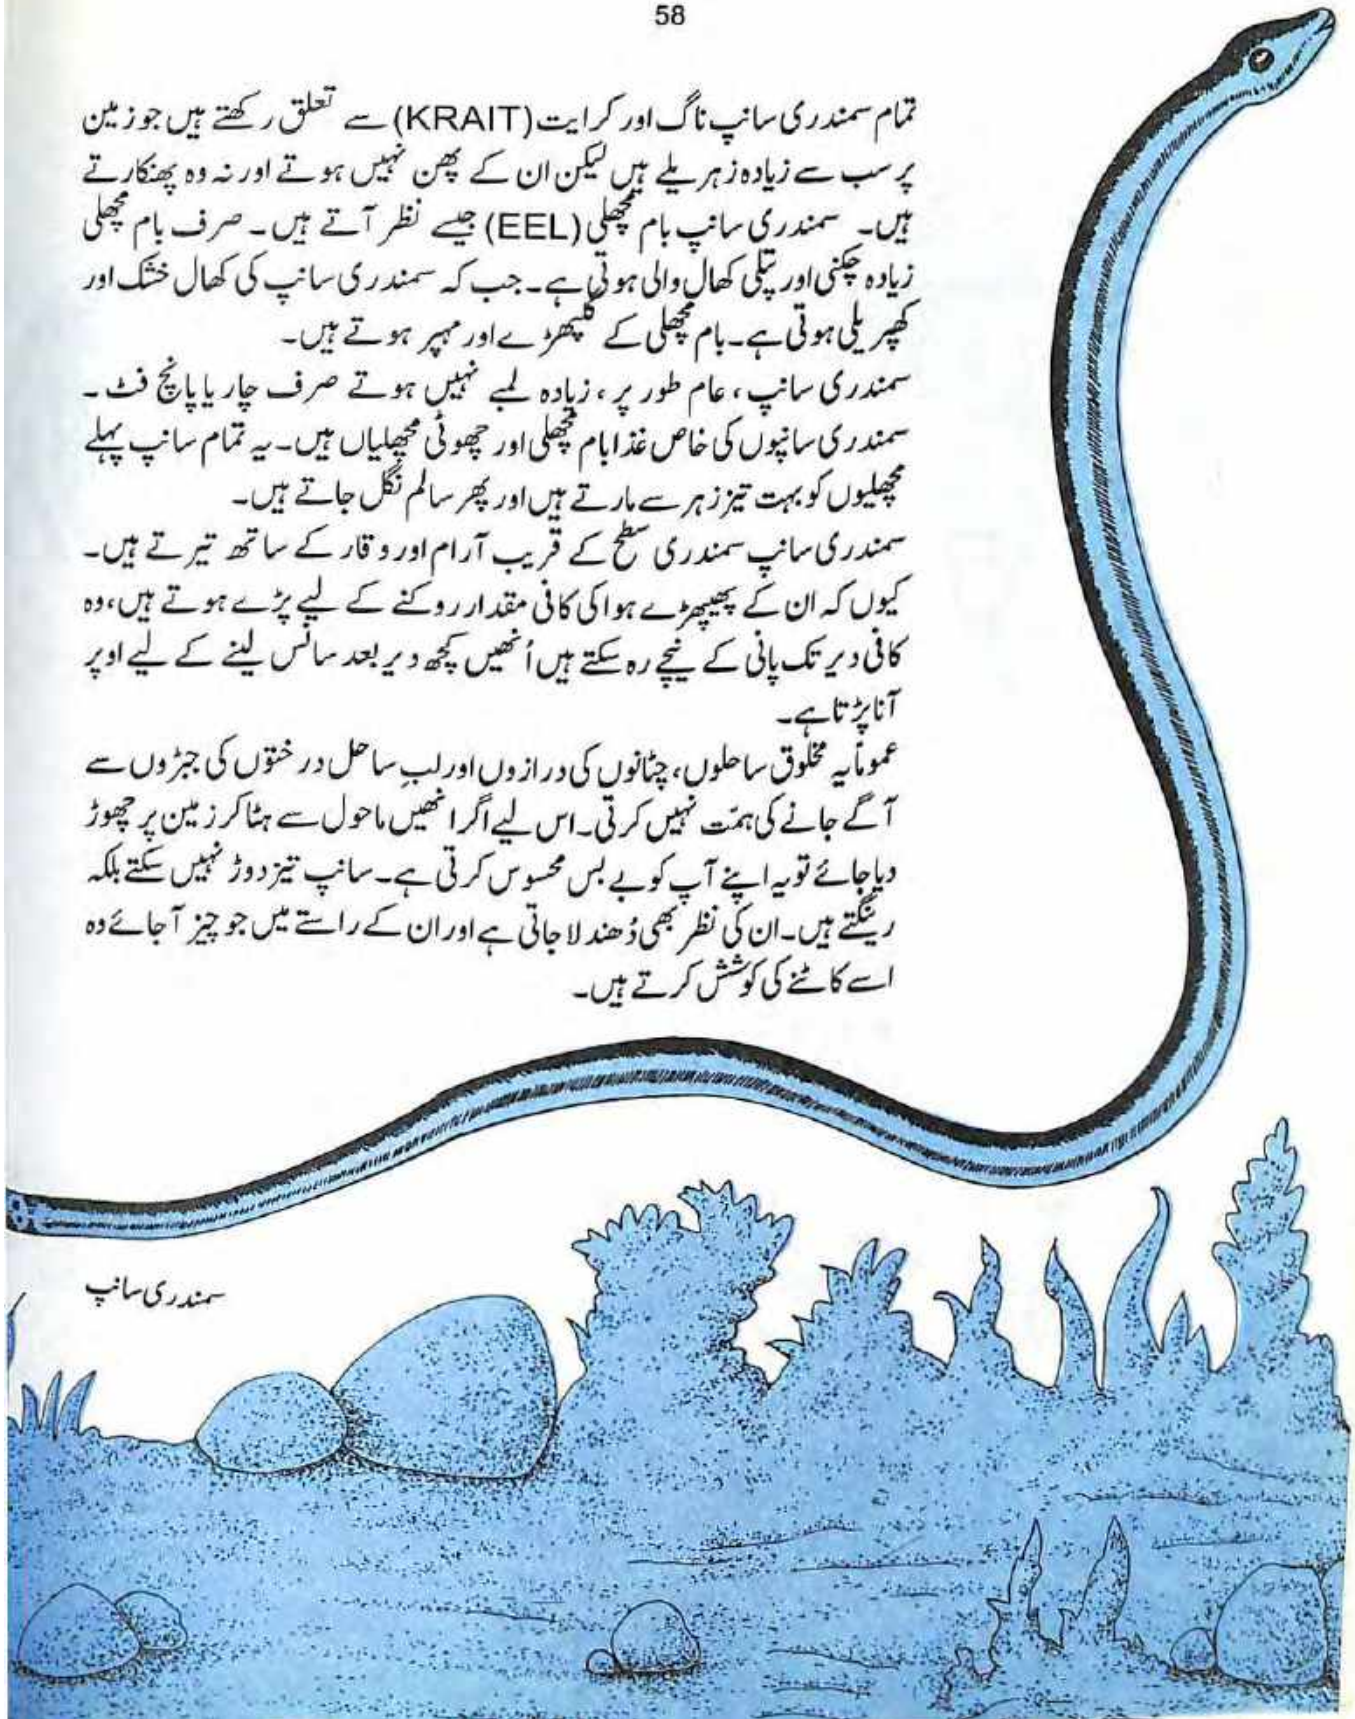 58
تمام سمندری سانپ ناگ اور کرایت (KRAIT) سے تعلق رکھتے ہیں جو زمین
پر سب سے زیادہ زہریلے ہیں لیکن ان کے پھن نہیں ہوتے اور نہ وہ پھنکارتے
ہیں۔ سمندری سانپ بام مچھلی (EEL) جیسے نظر آتے ہیں۔ صرف بام مچھلی
زیادہ چکنی اور پتلی کھال والی ہوتی ہے۔ جب کہ سمندری سانپ کی کھال خشک اور
کھپریلی ہوتی ہے۔ بام مچھلی کے گلپھڑے اور مہپر ہوتے ہیں۔
سمندری سانپ، عام طور پر، زیادہ لمبے نہیں ہوتے صرف چار یا پانچ فٹ۔
سمندری سانپوں کی خاص غذا بام مچھلی اور چھوٹی مچھلیاں ہیں۔ یہ تمام سانپ پہلے
مچھلیوں کو بہت تیز زہر سے مارتے ہیں اور پھر سالم نگل جاتے ہیں۔
سمندری سانپ سمندری سطح کے قریب آرام اور وقار کے ساتھ تیرتے ہیں۔
کیوں کہ ان کے پھیپھڑے ہوا کی کافی مقدار روکنے کے لیے پڑے ہوتے ہیں، وہ
کافی دیر تک پانی کے نیچے رہ سکتے ہیں اُنھیں کچھ دیر بعد سانس لینے کے لیے اوپر
آنا پڑتا ہے۔
عموماً یہ مخلوق ساحلوں، چٹانوں کی درازوں اور لبِ ساحل درختوں کی جبڑوں سے
آگے جانے کی ہمّت نہیں کرتی۔ اس لیے اگر انھیں ماحول سے ہٹا کر زمین پر چھوڑ
دیا جائے تو یہ اپنے آپ کو بے بس محسوس کرتی ہے۔ سانپ تیز دوڑ نہیں سکتے بلکہ
رینگتے ہیں۔ ان کی نظر بھی دُھندلا جاتی ہے اور ان کے راستے میں جو چیز آ جائے وہ
اسے کاٹنے کی کوشش کرتے ہیں۔
سمندری سانپ